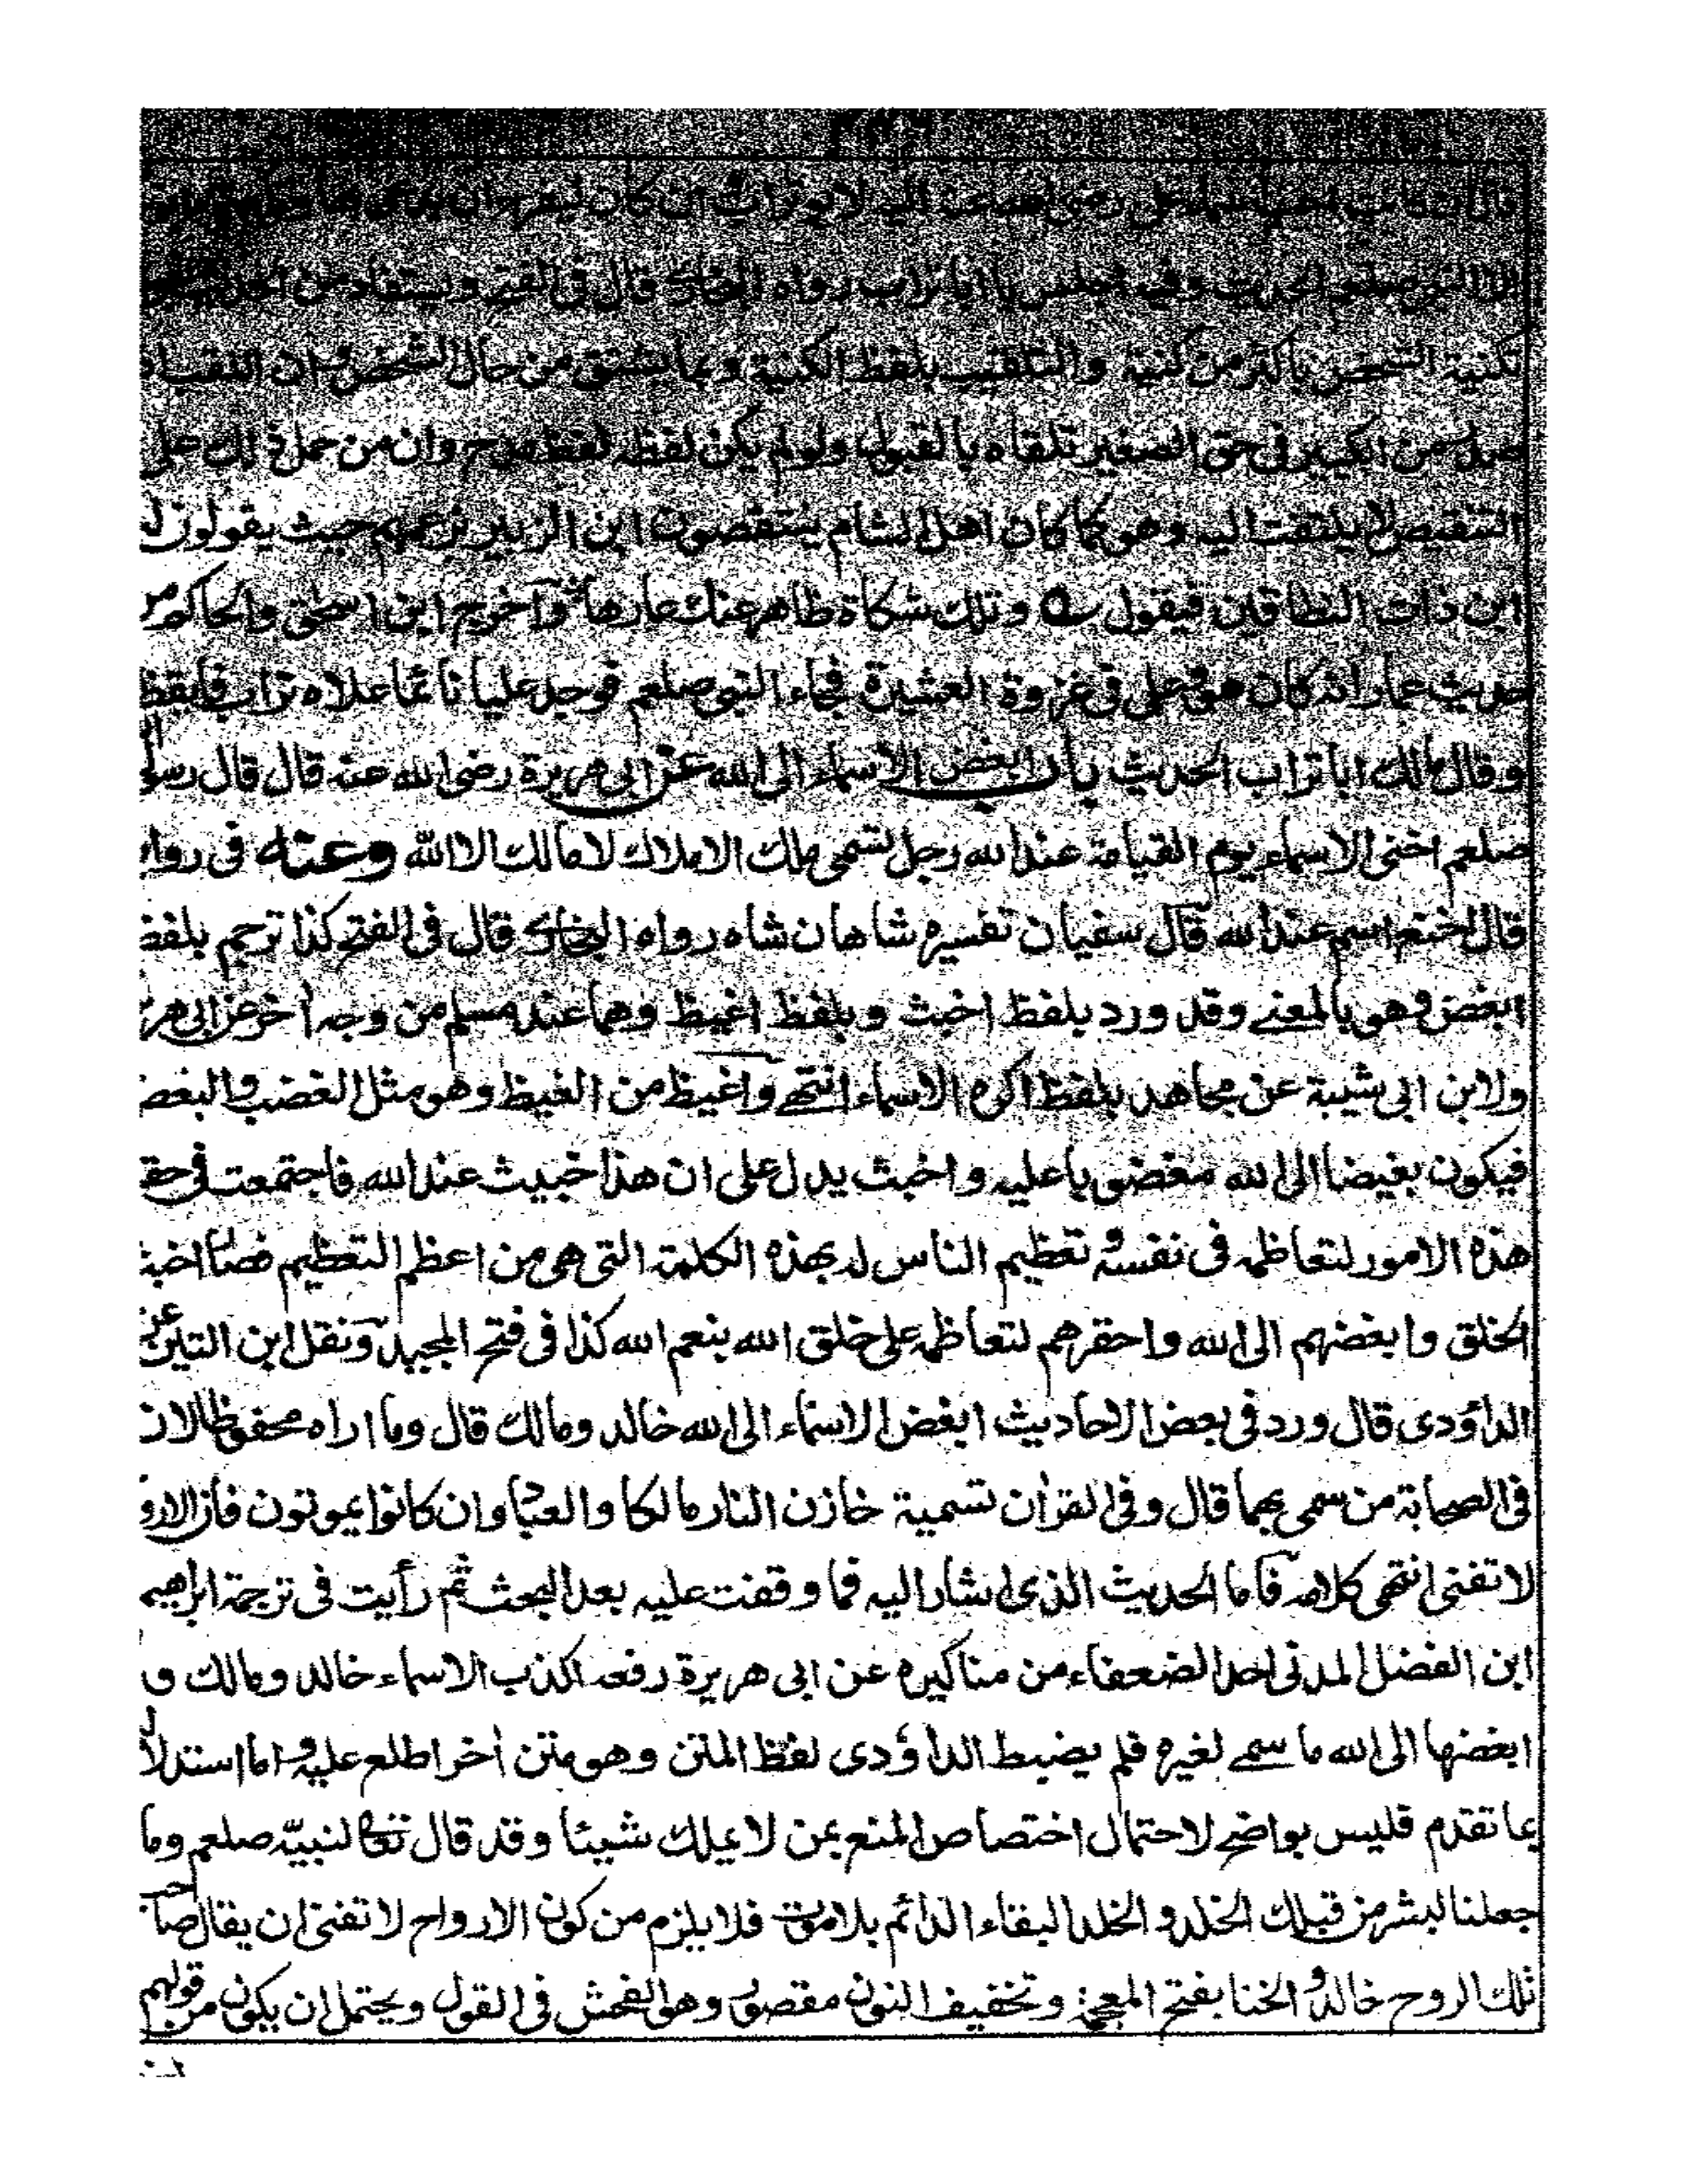 اليه لابو تراب ان كان ليفرح ان
النبي صلعم الحديث وفيه اجلس يا ابا تراب رواه البخاري قال في الفتح ويستفاد من
تكنية الشخص باكثر من كنية والتلقيب بلفظ الكنية وبما يشتق من حال الشخص وان اللقب اذا
من الكبير في حق الصغير تلقاه بالقبول ولو لم يكن لفظه لفظ مدح وان من حمل ذلك على
التنقيص لا يلتفت اليه وهو كما كان اهل الشام ينتقصون ابن الزبير بزعمهم حيث يقولون له
ابن ذات النطاقين فيقول وتلك شكاة ظاهر عنك عارها وآخرج ابن اسحق والحاكم من
حديث عمار انه كان هو وعلي في غزوة العشيرة فجاء النبي صلعم فوجد عليا نائما علاه تراب فايقظ
وقال مالك ابا تراب الحديث باب ابغض الاسماء الى الله عن ابي هريرة رضي الله عنه قال قال رسول
صلعم اخنى الاسماء يوم القيامة عند الله رجل تسمى ملك الاملاك لا مالك الا الله وعنه في روا
قال اخنع اسم عند الله قال سفيان تفسيره شاهان شاه رواه البخاري قال في الفتح كذا ترجم بلفظ
ابغض وهو بالمعنے وقد ورد بلفظ اخبث وبلفظ اغيظ وهما عند مسلم من وجه اخر عن ابي هر
ولابن ابي شيبة عن مجاهد بلفظ اكره الاسماء انتهے واغيظ من الغيظ وهو مثل الغضب والبغض
فيكون بغيضا الى الله مغضوبا عليه واخبث يدل على ان هذا خبيث عند الله فاجتمعت في حق
هذه الامور لتعاظمه في نفسه وتعظيم الناس له بهذه الكلمة التي هي من اعظم التعظيم فصار اخبث
الخلق وابغضهم الى الله واحقرهم لتعاظمه على خلق الله بنعم الله كذا في فتح المجيد ونقل ابن التين عن
الداؤدى قال ورد في بعض الاحاديث ابغض الاسماء الى الله خالد ومالك قال وما اراه محفوظا لان
في الصحابة من سمى بهما قال وفي القران تسمية خازن النار مالكا والعباد وان كانوا يموتون فان الارو
لا تفنى انتهى كلامه فاما الحديث الذى اشار اليه فما وقفت عليه بعد البحث ثم رأيت في ترجمة ابراهيم
ابن الفضل المدني احد الضعفاء من مناكيره عن ابي هريرة رفعه اكذب الاسماء خالد ومالك و
ابغضها الى الله ما سمے لغيره فلم يضبط الداؤدى لفظ المتن وهو متن اخر اطلع عليه واما استدلاله
بما تقدم فليس بواضح لاحتمال اختصاص المنع بمن لا يملك شيئا وقد قال تعالى لنبيّه صلعم وما
جعلنا لبشر من قبلك الخلد والخلد البقاء الدائم بلا موت فلا يلزم من كون الارواح لا تفنى ان يقال صاحب
تلك الروح خالد والخنا بفتح المعجمة وتخفيف النون مقصور وهو الفحش في القول ويحتمل ان يكون من قولهم